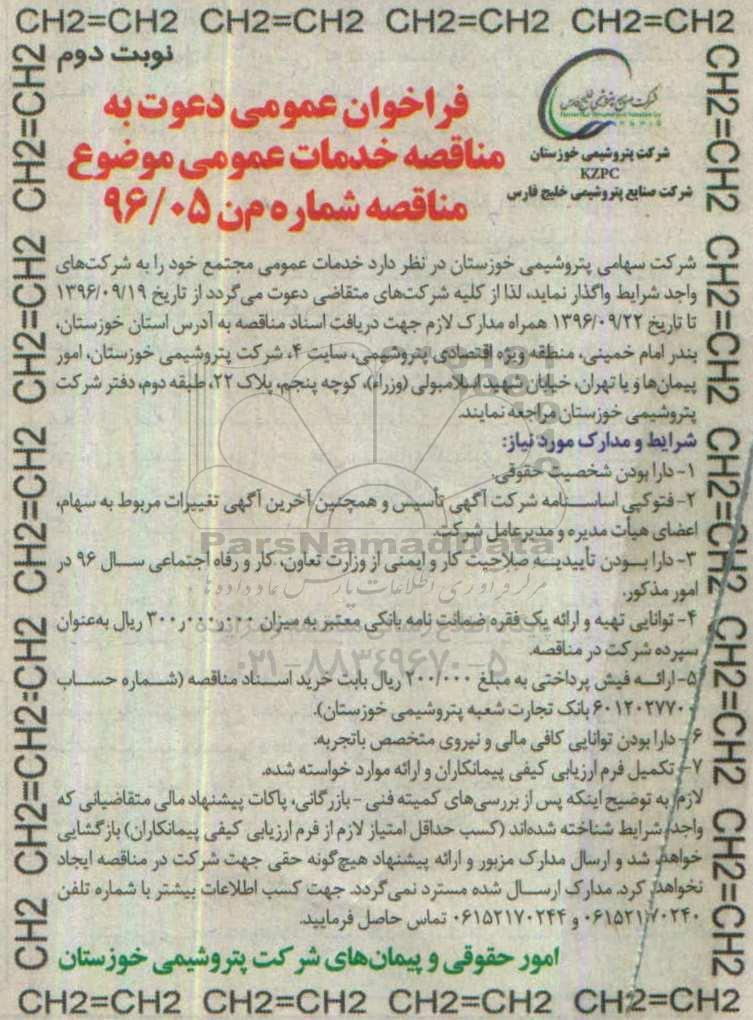 CH2=CH2 CH2=CH2 CH2=CH2 CH2=CH2
نوبت دوم
شرکت صنایع پتروشیمی خلیج فارس
P G P I C
شرکت پتروشیمی خوزستان
KZPC
شرکت صنایع پتروشیمی خلیج فارس
فراخوان عمومی دعوت به
مناقصه خدمات عمومی موضوع
مناقصه شماره م‌ن ۹۶/۰۵
شرکت سهامی پتروشیمی خوزستان در نظر دارد خدمات عمومی مجتمع خود را به شرکت‌های
واجد شرایط واگذار نماید، لذا از کلیه شرکت‌های متقاضی دعوت می‌گردد از تاریخ ۱۳۹۶/۰۹/۱۹
تا تاریخ ۱۳۹۶/۰۹/۲۲ همراه مدارک لازم جهت دریافت اسناد مناقصه به آدرس استان خوزستان،
بندر امام خمینی، منطقه ویژه اقتصادی پتروشیمی، سایت ۴، شرکت پتروشیمی خوزستان، امور
پیمان‌ها و یا تهران، خیابان شهید اسلامبولی (وزراء)، کوچه پنجم، پلاک ۲۲، طبقه دوم، دفتر شرکت
پتروشیمی خوزستان مراجعه نمایند.
شرایط و مدارک مورد نیاز:
۱- دارا بودن شخصیت حقوقی.
۲- فتوکپی اساسنامه شرکت آگهی تأسیس و همچنین آخرین آگهی تغییرات مربوط به سهام،
اعضای هیأت مدیره و مدیرعامل شرکت.
۳- دارا بودن تأییدیه صلاحیت کار و ایمنی از وزارت تعاون، کار و رفاه اجتماعی سال ۹۶ در
امور مذکور.
۴- توانایی تهیه و ارائه یک فقره ضمانت نامه بانکی معتبر به میزان ۳۰۰٫۰۰۰٫۰۰۰ ریال به‌عنوان
سپرده شرکت در مناقصه.
۵- ارائه فیش پرداختی به مبلغ ۲۰۰/۰۰۰ ریال بابت خرید اسناد مناقصه (شماره حساب
۶۰۱۲۰۲۷۷۰۰ بانک تجارت شعبه پتروشیمی خوزستان).
۶- دارا بودن توانایی کافی مالی و نیروی متخصص باتجربه.
۷- تکمیل فرم ارزیابی کیفی پیمانکاران و ارائه موارد خواسته شده.
لازم به توضیح اینکه پس از بررسی‌های کمیته فنی - بازرگانی، پاکات پیشنهاد مالی متقاضیانی که
واجد شرایط شناخته شده‌اند (کسب حداقل امتیاز لازم از فرم ارزیابی کیفی پیمانکاران) بازگشایی
خواهد شد و ارسال مدارک مزبور و ارائه پیشنهاد هیچ‌گونه حقی جهت شرکت در مناقصه ایجاد
نخواهد کرد. مدارک ارسال شده مسترد نمی‌گردد. جهت کسب اطلاعات بیشتر با شماره تلفن
۰۶۱۵۲۱۷۰۲۴۰ و ۰۶۱۵۲۱۷۰۲۴۴ تماس حاصل فرمایید.
امور حقوقی و پیمان‌های شرکت پتروشیمی خوزستان
ParsNamadData
مرکز فرآوری اطلاعات پارس نماد داده‌ها
۰۲۱-۸۸۳۴۹۶۷۰-۵
CH2=CH2 CH2=CH2 CH2=CH2 CH2=CH2 CH2=CH2
CH2=CH2 CH2=CH2 CH2=CH2 CH2=CH2 CH2=CH2
CH2=CH2 CH2=CH2 CH2=CH2 CH2=CH2